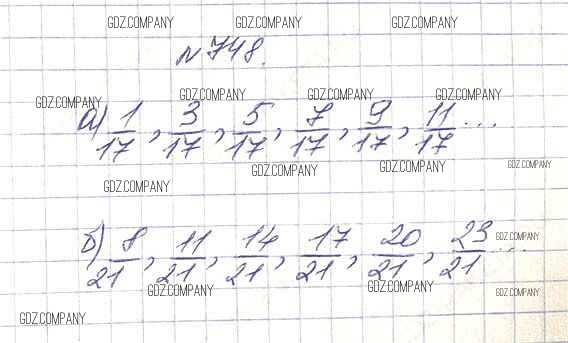 GDZ.COMPANY GDZ.COMPANY GDZ.COMPANY
№ 748.
GDZ.COMPANY GDZ.COMPANY GDZ.COMPANY GDZ.COMPANY
а) 1/17, 3/17, 5/17, 7/17, 9/17, 11/17 ...
GDZ.COMPANY GDZ.COMPANY GDZ.COMPANY
GDZ.COMPANY
б) 8/21, 11/21, 14/21, 17/21, 20/21, 23/21 ...
GDZ.COMPANY
GDZ.COMPANY GDZ.COMPANY GDZ.COMPANY
GDZ.COMPANY